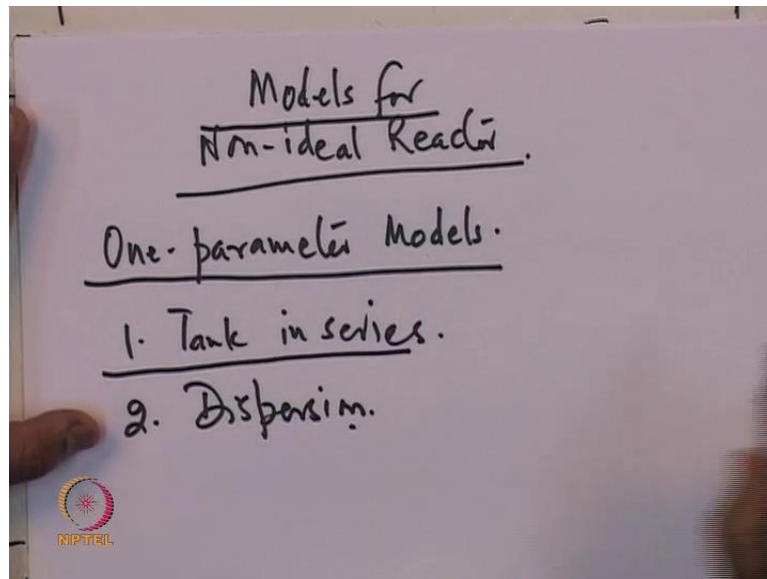 Models for
Non-ideal Reactor.
One-parameter Models.
1. Tank in series.
2. Dispersion.
NPTEL